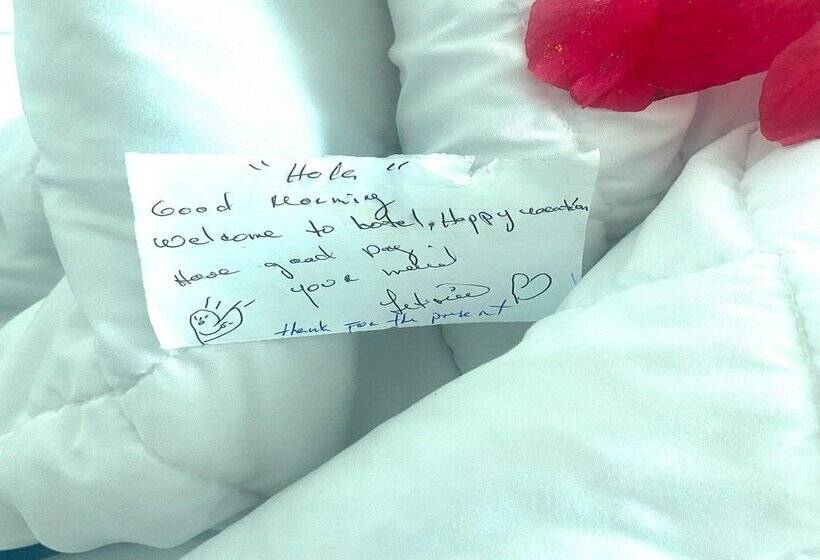 "Hola"
Good morning
welcome to hotel, Happy vacation
Have good Day
your maid
Leticia
thank For the present